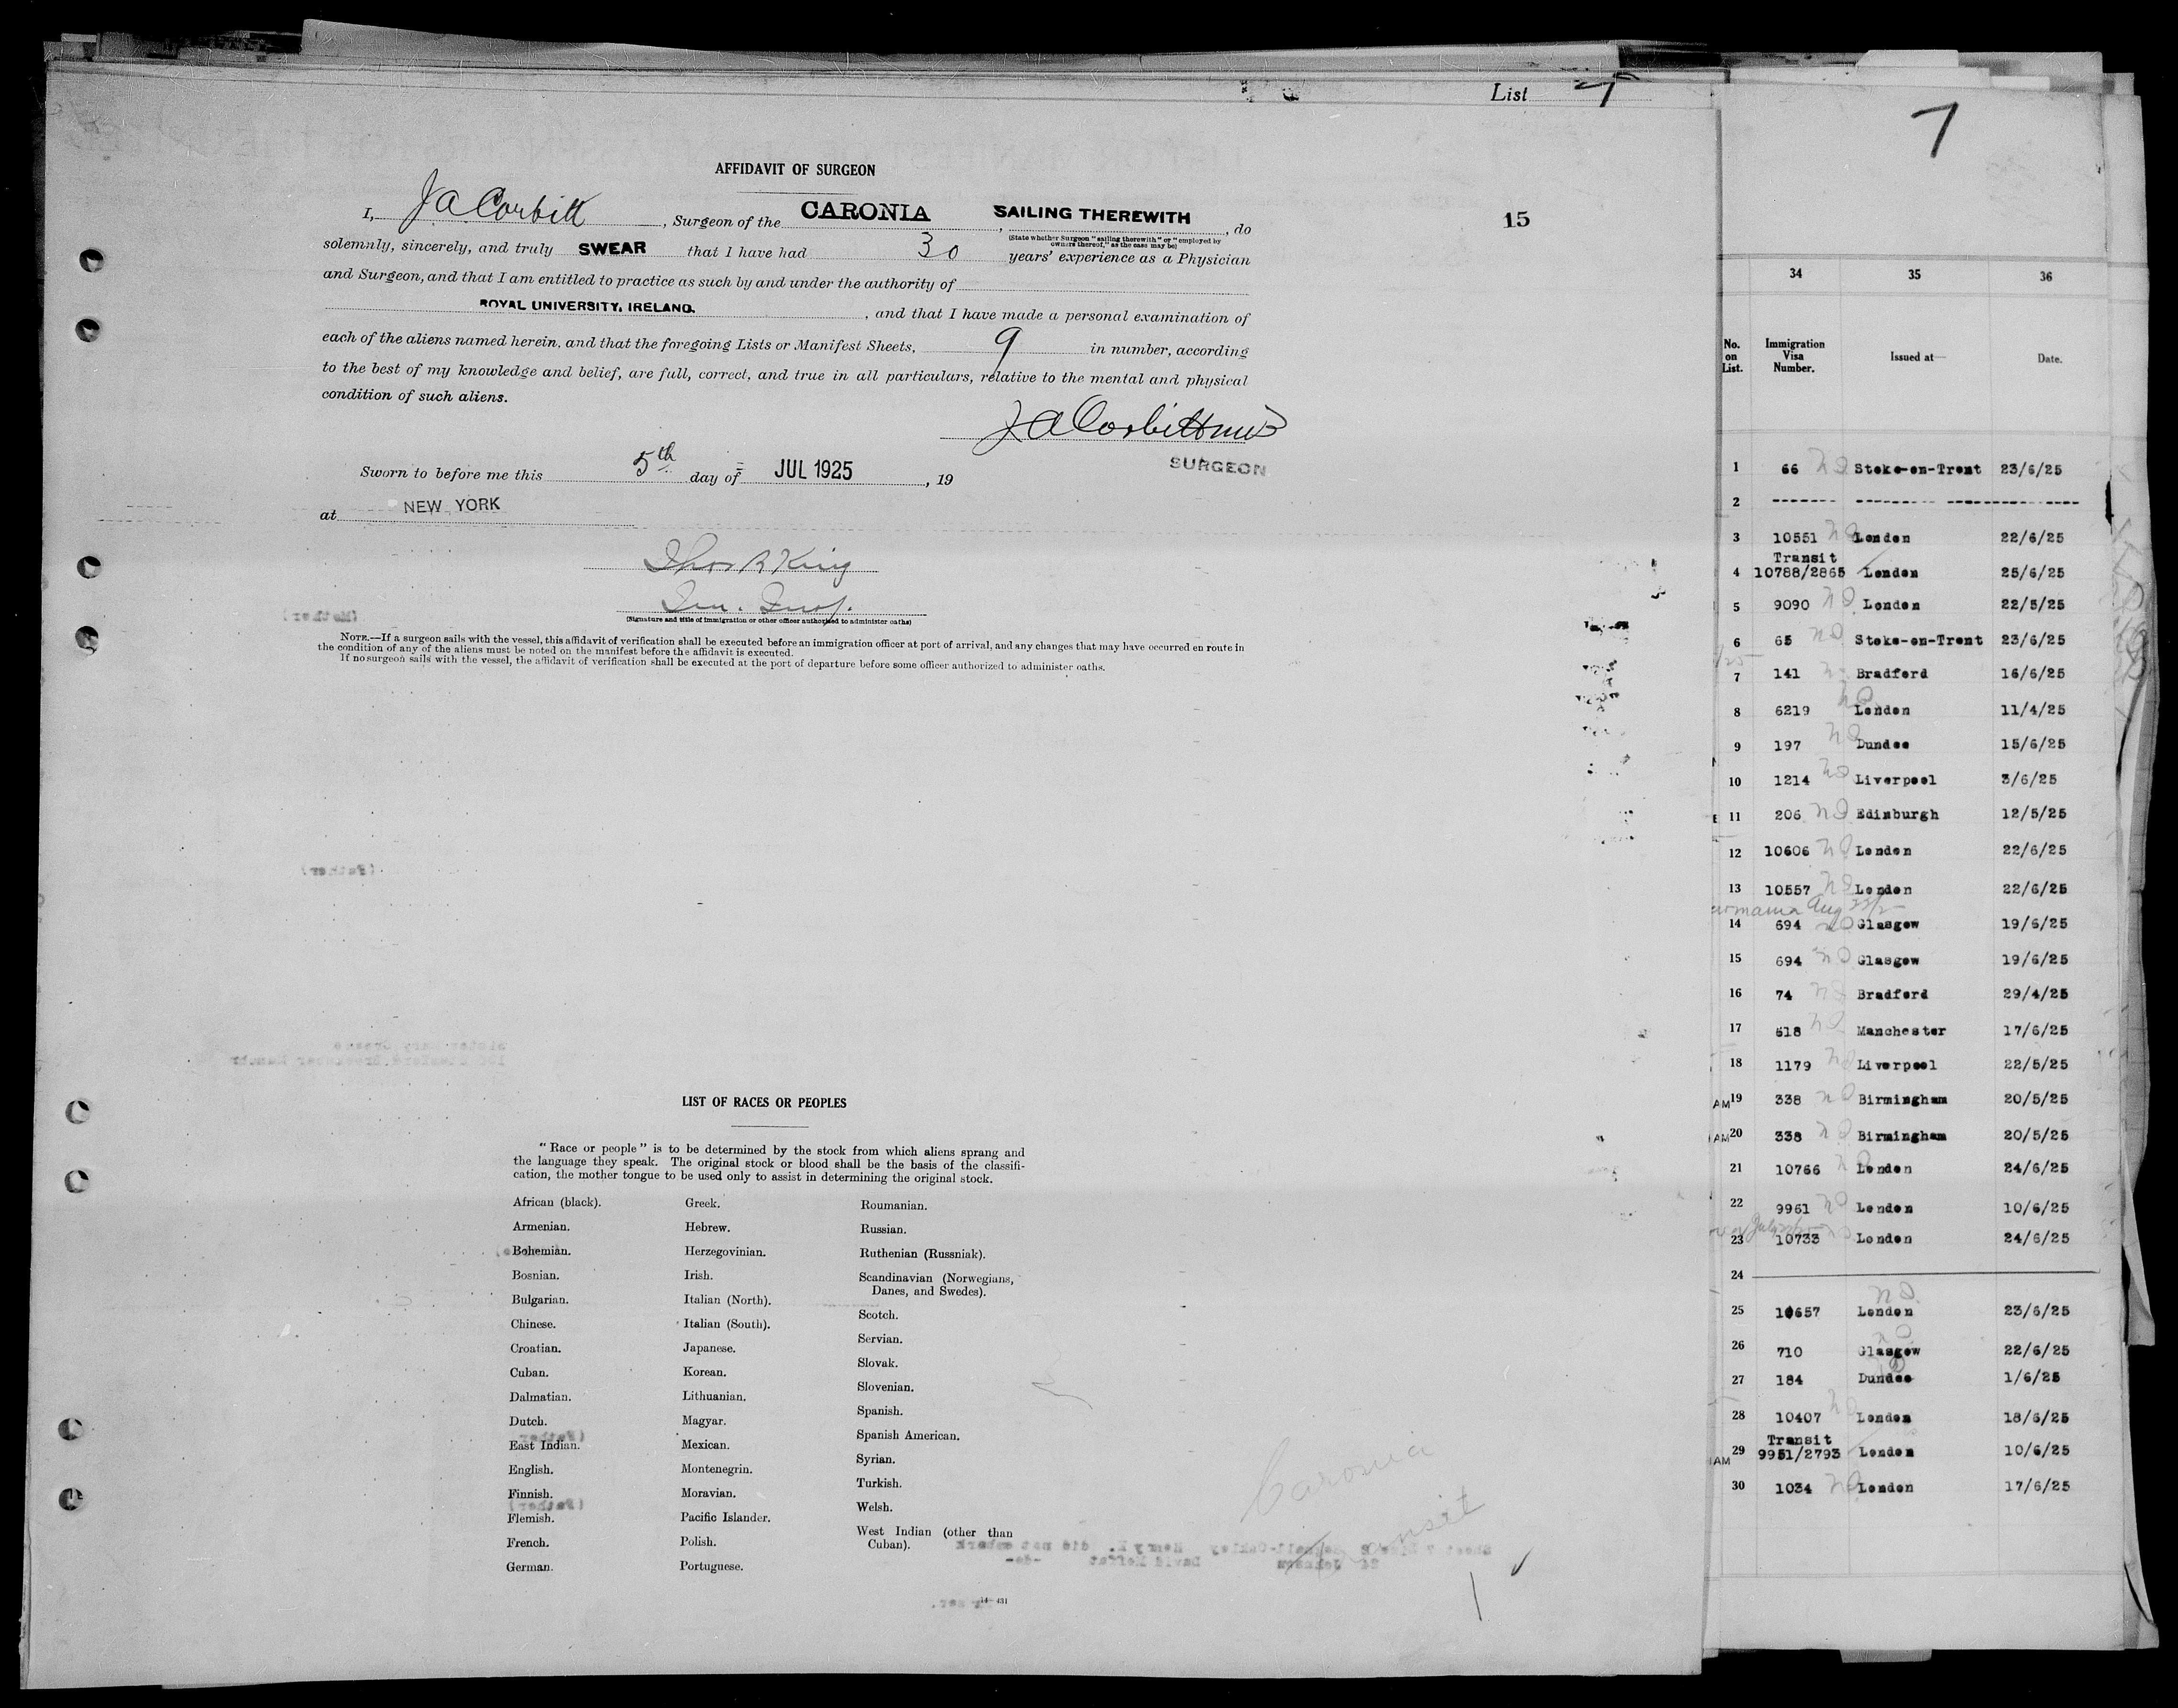 List 7
AFFIDAVIT OF SURGEON
I, J A Corbitt, Surgeon of the CARONIA, SAILING THEREWITH, do
(State whether Surgeon "sailing therewith" or "employed by owners thereof," as the case may be)
solemnly, sincerely, and truly SWEAR that I have had 30 years' experience as a Physician
and Surgeon, and that I am entitled to practice as such by and under the authority of
ROYAL UNIVERSITY, IRELAND., and that I have made a personal examination of
each of the aliens named herein, and that the foregoing Lists or Manifest Sheets, 9 in number, according
to the best of my knowledge and belief, are full, correct, and true in all particulars, relative to the mental and physical
condition of such aliens.
J A Corbitt MB
SURGEON
Sworn to before me this 5th day of JUL 1925, 19
at NEW YORK
Thos R King
Imm. Insp.
(Signature and title of immigration or other officer authorized to administer oaths)
NOTE.—If a surgeon sails with the vessel, this affidavit of verification shall be executed before an immigration officer at port of arrival, and any changes that may have occurred en route in
the condition of any of the aliens must be noted on the manifest before the affidavit is executed.
If no surgeon sails with the vessel, the affidavit of verification shall be executed at the port of departure before some officer authorized to administer oaths.
15
LIST OF RACES OR PEOPLES
"Race or people" is to be determined by the stock from which aliens sprang and
the language they speak. The original stock or blood shall be the basis of the classifi-
cation, the mother tongue to be used only to assist in determining the original stock.
African (black).
Armenian.
Bohemian.
Bosnian.
Bulgarian.
Chinese.
Croatian.
Cuban.
Dalmatian.
Dutch.
East Indian.
English.
Finnish.
Flemish.
French.
German.
Greek.
Hebrew.
Herzegovinian.
Irish.
Italian (North).
Italian (South).
Japanese.
Korean.
Lithuanian.
Magyar.
Mexican.
Montenegrin.
Moravian.
Pacific Islander.
Polish.
Portuguese.
Roumanian.
Russian.
Ruthenian (Russniak).
Scandinavian (Norwegians,
Danes, and Swedes).
Scotch.
Servian.
Slovak.
Slovenian.
Spanish.
Spanish American.
Syrian.
Turkish.
Welsh.
West Indian (other than
Cuban).
14—431
Caronia
Transit
1
7
34 35 36
No. on List. Immigration Visa Number. Issued at— Date.
1 66 ND Stoke-on-Trent 23/6/25
2 ------- --------- ---------------
3 10551 ND London 22/6/25
Transit
4 10788/2865 London 25/6/25
5 9090 ND London 22/5/25
6 65 ND Stoke-on-Trent 23/6/25
7 141 Bradford 16/6/25
8 6219 ND London 11/4/25
9 197 ND Dundee 15/6/25
10 1214 ND Liverpool 3/6/25
11 206 ND Edinburgh 12/5/25
12 10606 ND London 22/6/25
13 10557 ND London 22/6/25
14 694 ND Glasgow 19/6/25
15 694 ND Glasgow 19/6/25
16 74 ND Bradford 29/4/25
17 518 ND Manchester 17/6/25
18 1179 ND Liverpool 22/5/25
AM 19 338 ND Birmingham 20/5/25
AM 20 338 ND Birmingham 20/5/25
21 10766 London 24/6/25
22 9961 ND London 10/6/25
23 10733 London 24/6/25
24
25 10657 ND London 23/6/25
26 710 ND Glasgow 22/6/25
27 184 ND Dundee 1/6/25
28 10407 ND London 18/6/25
Transit
AM 29 9951/2793 London 10/6/25
30 1034 ND London 17/6/25